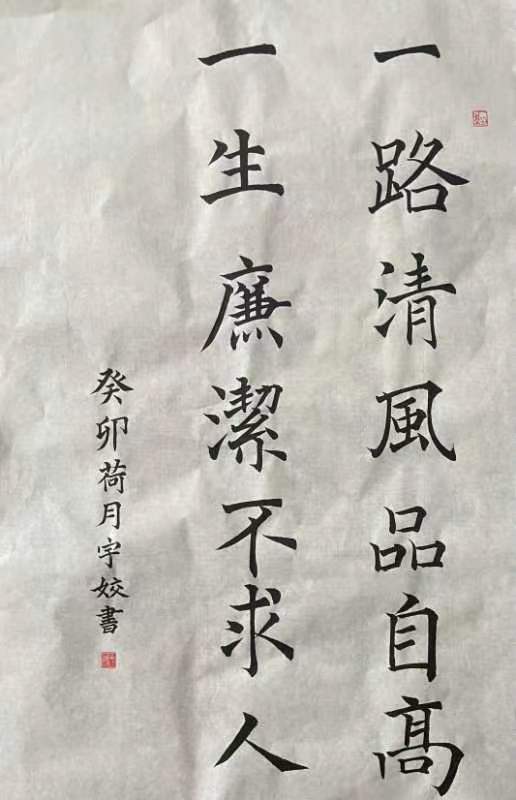 一路清風品自高
一生廉潔不求人
癸卯荷月宇姣書